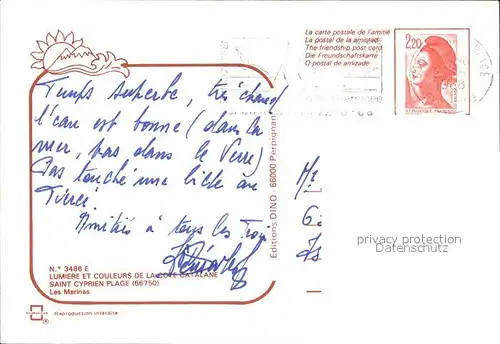 La carte postale de l'amitié
La postal de la amistad
The friendship post card
Die Freundschaftskarte
O postal de amizade
2,20
Temps superbe, très chaud
l'eau est bonne (dans la
mer, pas dans le verre)
Pas touché une bille au
Tiercé!
Amitiés à tous les Trois
Editions DINO - 66000 Perpignan
privacy protection
Datenschutz
N.° 3486 E
LUMIERE ET COULEURS DE LA COTE CATALANE
SAINT CYPRIEN PLAGE (66750)
Les Marinas
Reproduction interdite